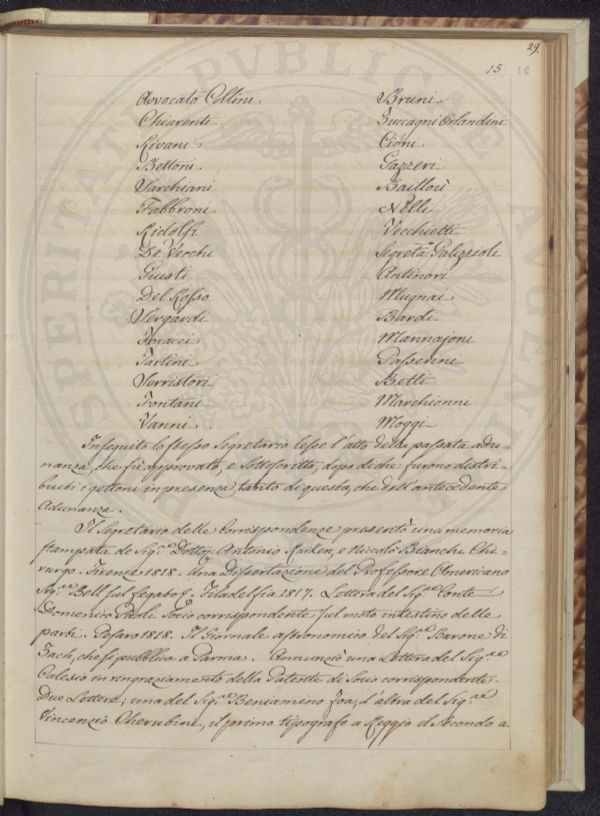 29.
15 16
Avvocato Collini Bruni
Chiarenti Zuccagni Orlandini
Rivani Cioni
Bettoni Gazzeri
Sarchiani Baillou
Fabbroni Nelli
Ridolfi Vecchietti
De Vecchi Segretº. Galizioli
Giusti Antinori
Del Rosso Mugnai
Sergardi Bardi
Tartini Passerini
Serristori Betti
Fontani Marchionni
Vanni Moggi
In seguito lo stesso Segretario lesse l'atto della passata adu-
nanza, che fù approvato, e sottoscritto, dopo di che furono distri-
buiti i gettoni in presenza, tanto di questa, che dell'antecedente
Adunanza.
Il Segretario delle Corrispondenze presentò una memoria
stampata de Sigri. Dottori Antonio e Niccolò Bianchi Chi-
rurgo. Firenze 1818. Una Dissertazione del Professore Americano
Sigre. Bell sul fegato. Filadelfia 1817. Lettera del Sigre. Conte
Domenico Paoli Socio corrispondente sul moto intestino delle
parti. Pesaro 1818. Il Giornale astronomico del Sigre. Barone di
Zach, che si pubblica a Parma. Annunziò una Lettera del Sigre.
in ringraziamento della Patente di Socio corrispondente.
Due Lettere; una del Sigre. Beniamino Foa, l'altra del Sigre.
Vincenzio Cherubini, il primo tipografo a Reggio il secondo a